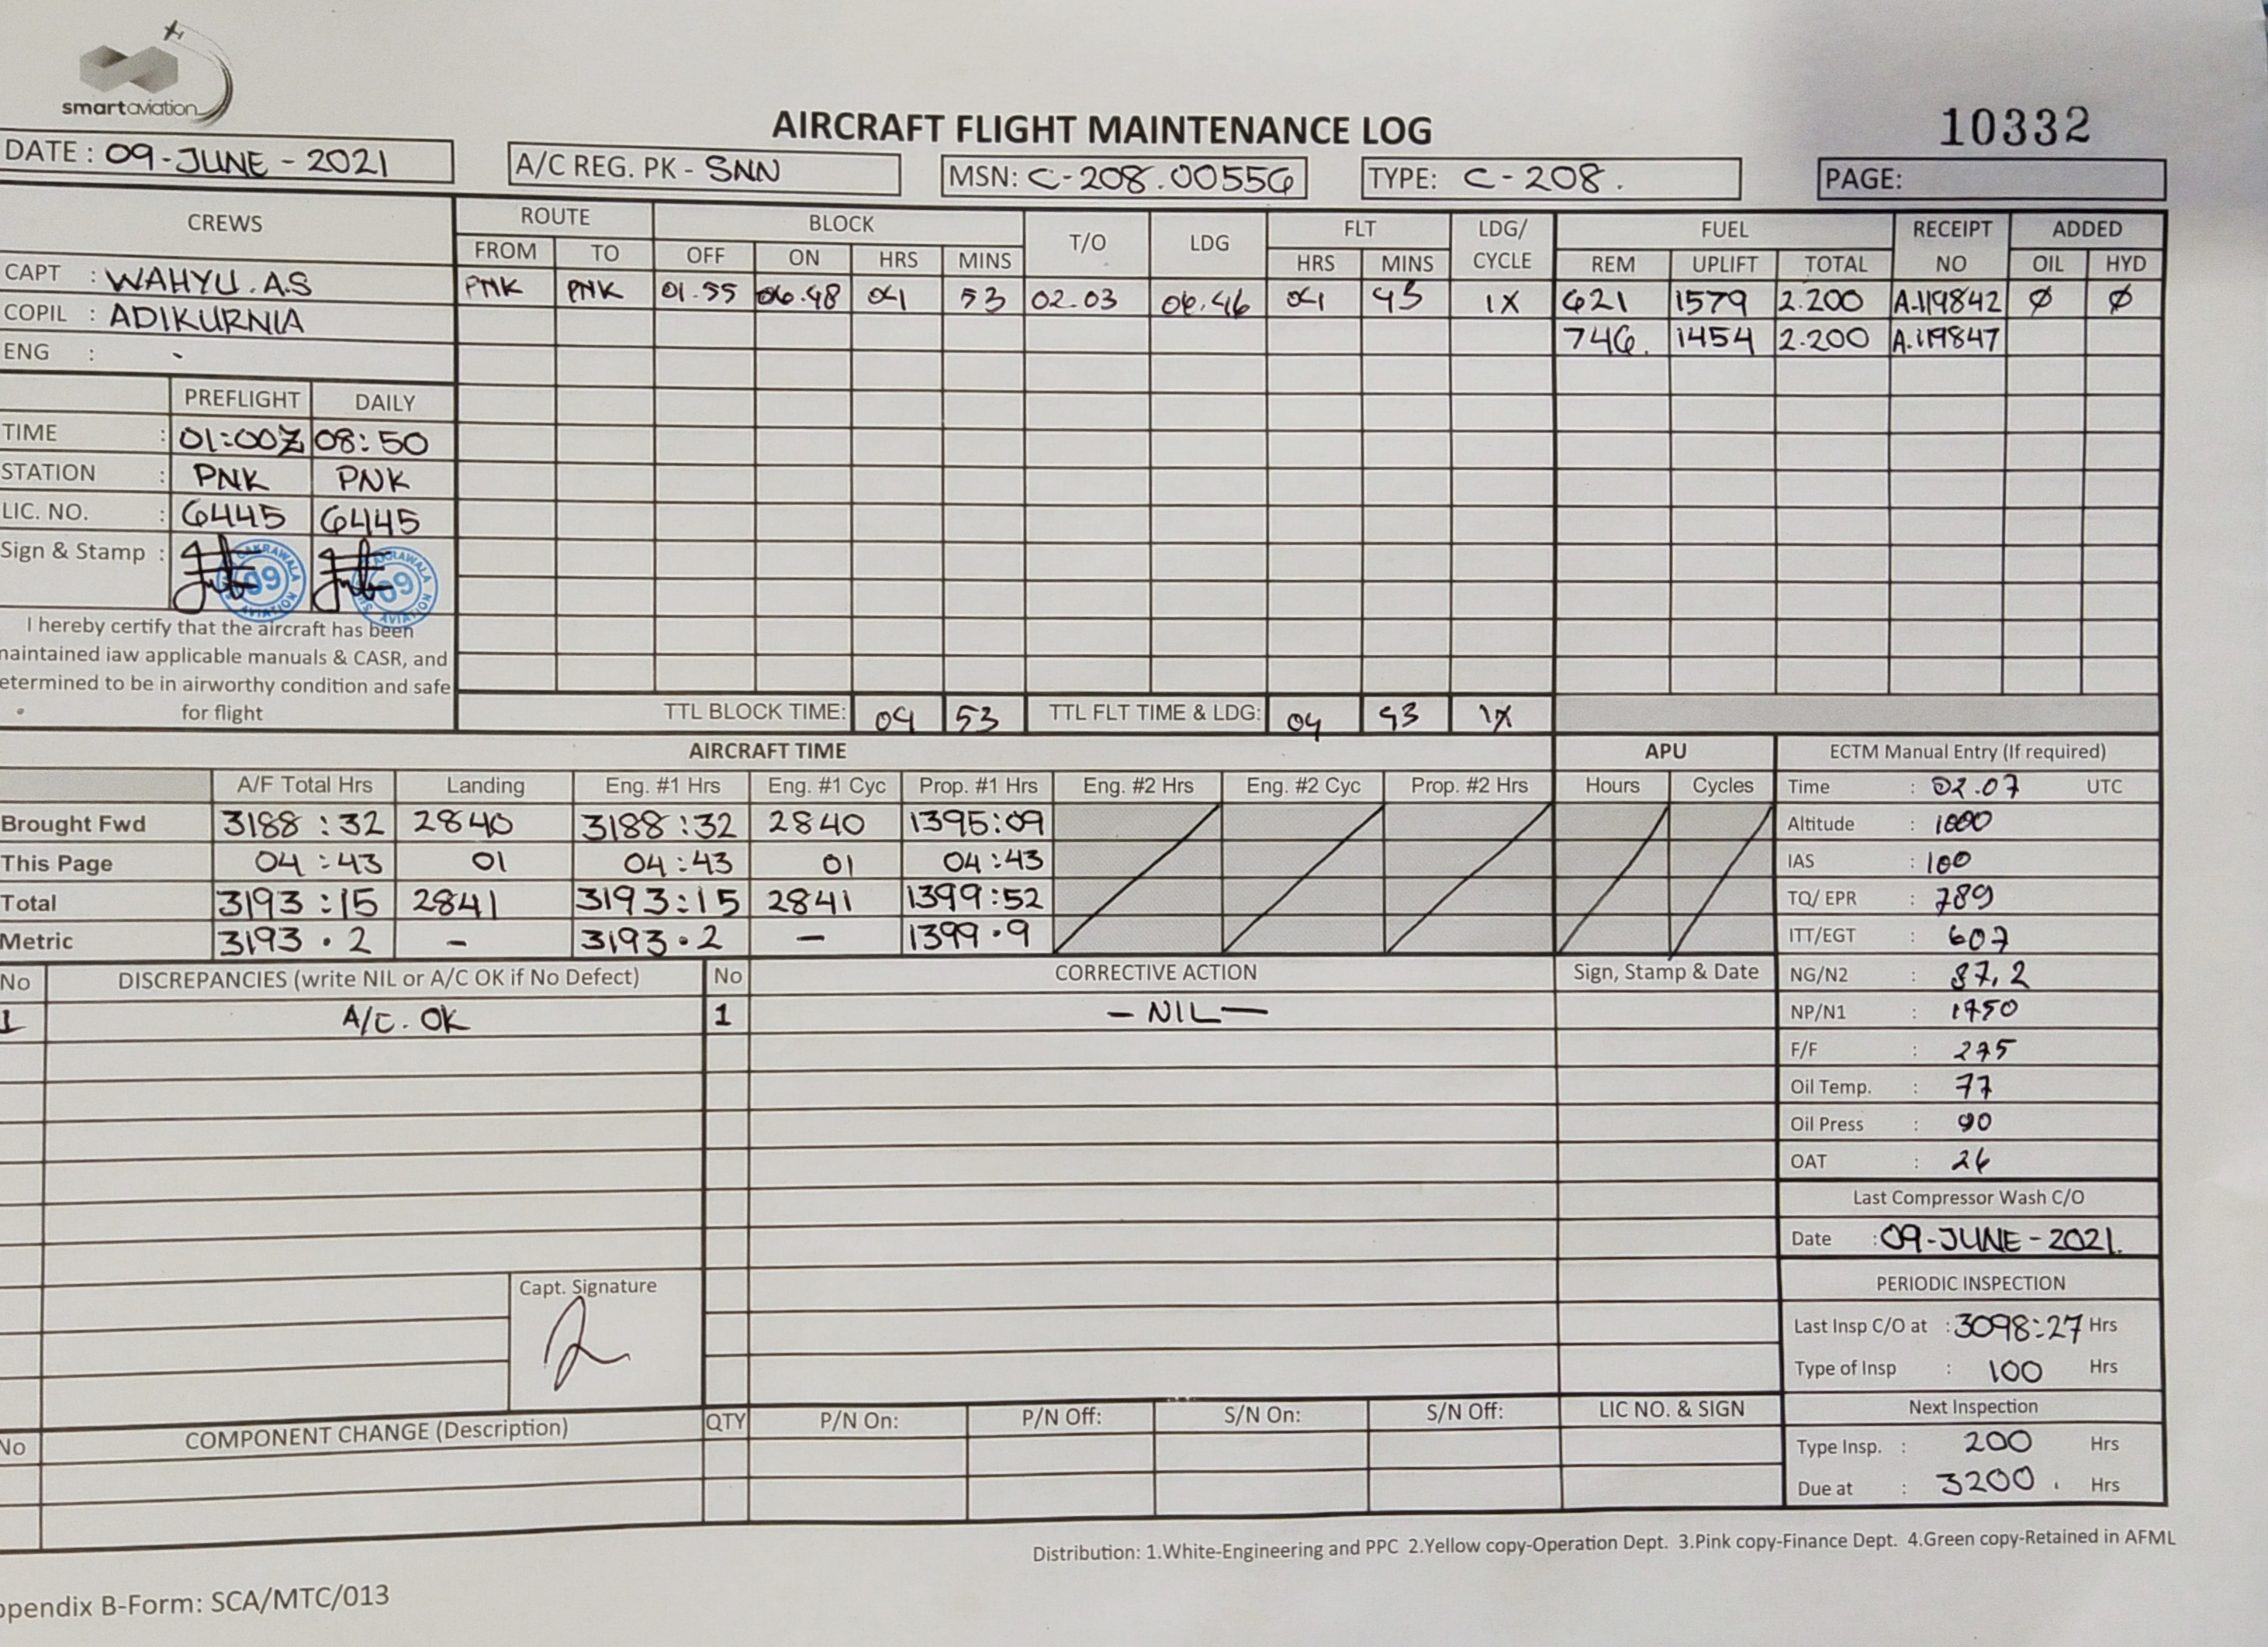 smartaviation
AIRCRAFT FLIGHT MAINTENANCE LOG
10332
DATE : 09-JUNE-2021
A/C REG. PK - SNN
MSN: C-208.00556
TYPE: C-208.
PAGE:
CREWS
ROUTE BLOCK T/O LDG FLT LDG/ CYCLE FUEL RECEIPT NO ADDED
FROM TO OFF ON HRS MINS HRS MINS REM UPLIFT TOTAL OIL HYD
CAPT : WAHYU.A.S
PNK PNK 01.55 06.48 04 53 02.03 06.46 04 43 1X 621 1579 2.200 A.119842 Ø Ø
COPIL : ADIKURNIA
746. 1454 2.200 A.119847
ENG : -
PREFLIGHT DAILY
TIME : 01:00Z 08:50
STATION : PNK PNK
LIC. NO. : 6445 6445
Sign & Stamp :
09 AVIATION
09 AVIATION
I hereby certify that the aircraft has been
maintained iaw applicable manuals & CASR, and
etermined to be in airworthy condition and safe
for flight
TTL BLOCK TIME: 04 53 TTL FLT TIME & LDG: 04 43 1X
AIRCRAFT TIME
A/F Total Hrs Landing Eng. #1 Hrs Eng. #1 Cyc Prop. #1 Hrs Eng. #2 Hrs Eng. #2 Cyc Prop. #2 Hrs
Brought Fwd 3188:32 2840 3188:32 2840 1395:09
This Page 04:43 01 04:43 01 04:43
Total 3193:15 2841 3193:15 2841 1399:52
Metric 3193.2 - 3193.2 - 1399.9
APU
Hours Cycles
ECTM Manual Entry (If required)
Time : 02.07 UTC
Altitude : 1000
IAS : 100
TQ/ EPR : 789
ITT/EGT : 607
NG/N2 : 87,2
NP/N1 : 1750
F/F : 275
Oil Temp. : 77
Oil Press : 90
OAT : 26
Last Compressor Wash C/O
Date : 09-JUNE-2021.
PERIODIC INSPECTION
Last Insp C/O at : 3098:27 Hrs
Type of Insp : 100 Hrs
Next Inspection
Type Insp. : 200 Hrs
Due at : 3200. Hrs
No DISCREPANCIES (write NIL or A/C OK if No Defect) No CORRECTIVE ACTION Sign, Stamp & Date
1 A/C. OK 1 - NIL -
Capt. Signature
No COMPONENT CHANGE (Description) QTY P/N On: P/N Off: S/N On: S/N Off: LIC NO. & SIGN
Distribution: 1.White-Engineering and PPC 2.Yellow copy-Operation Dept. 3.Pink copy-Finance Dept. 4.Green copy-Retained in AFML
ppendix B-Form: SCA/MTC/013